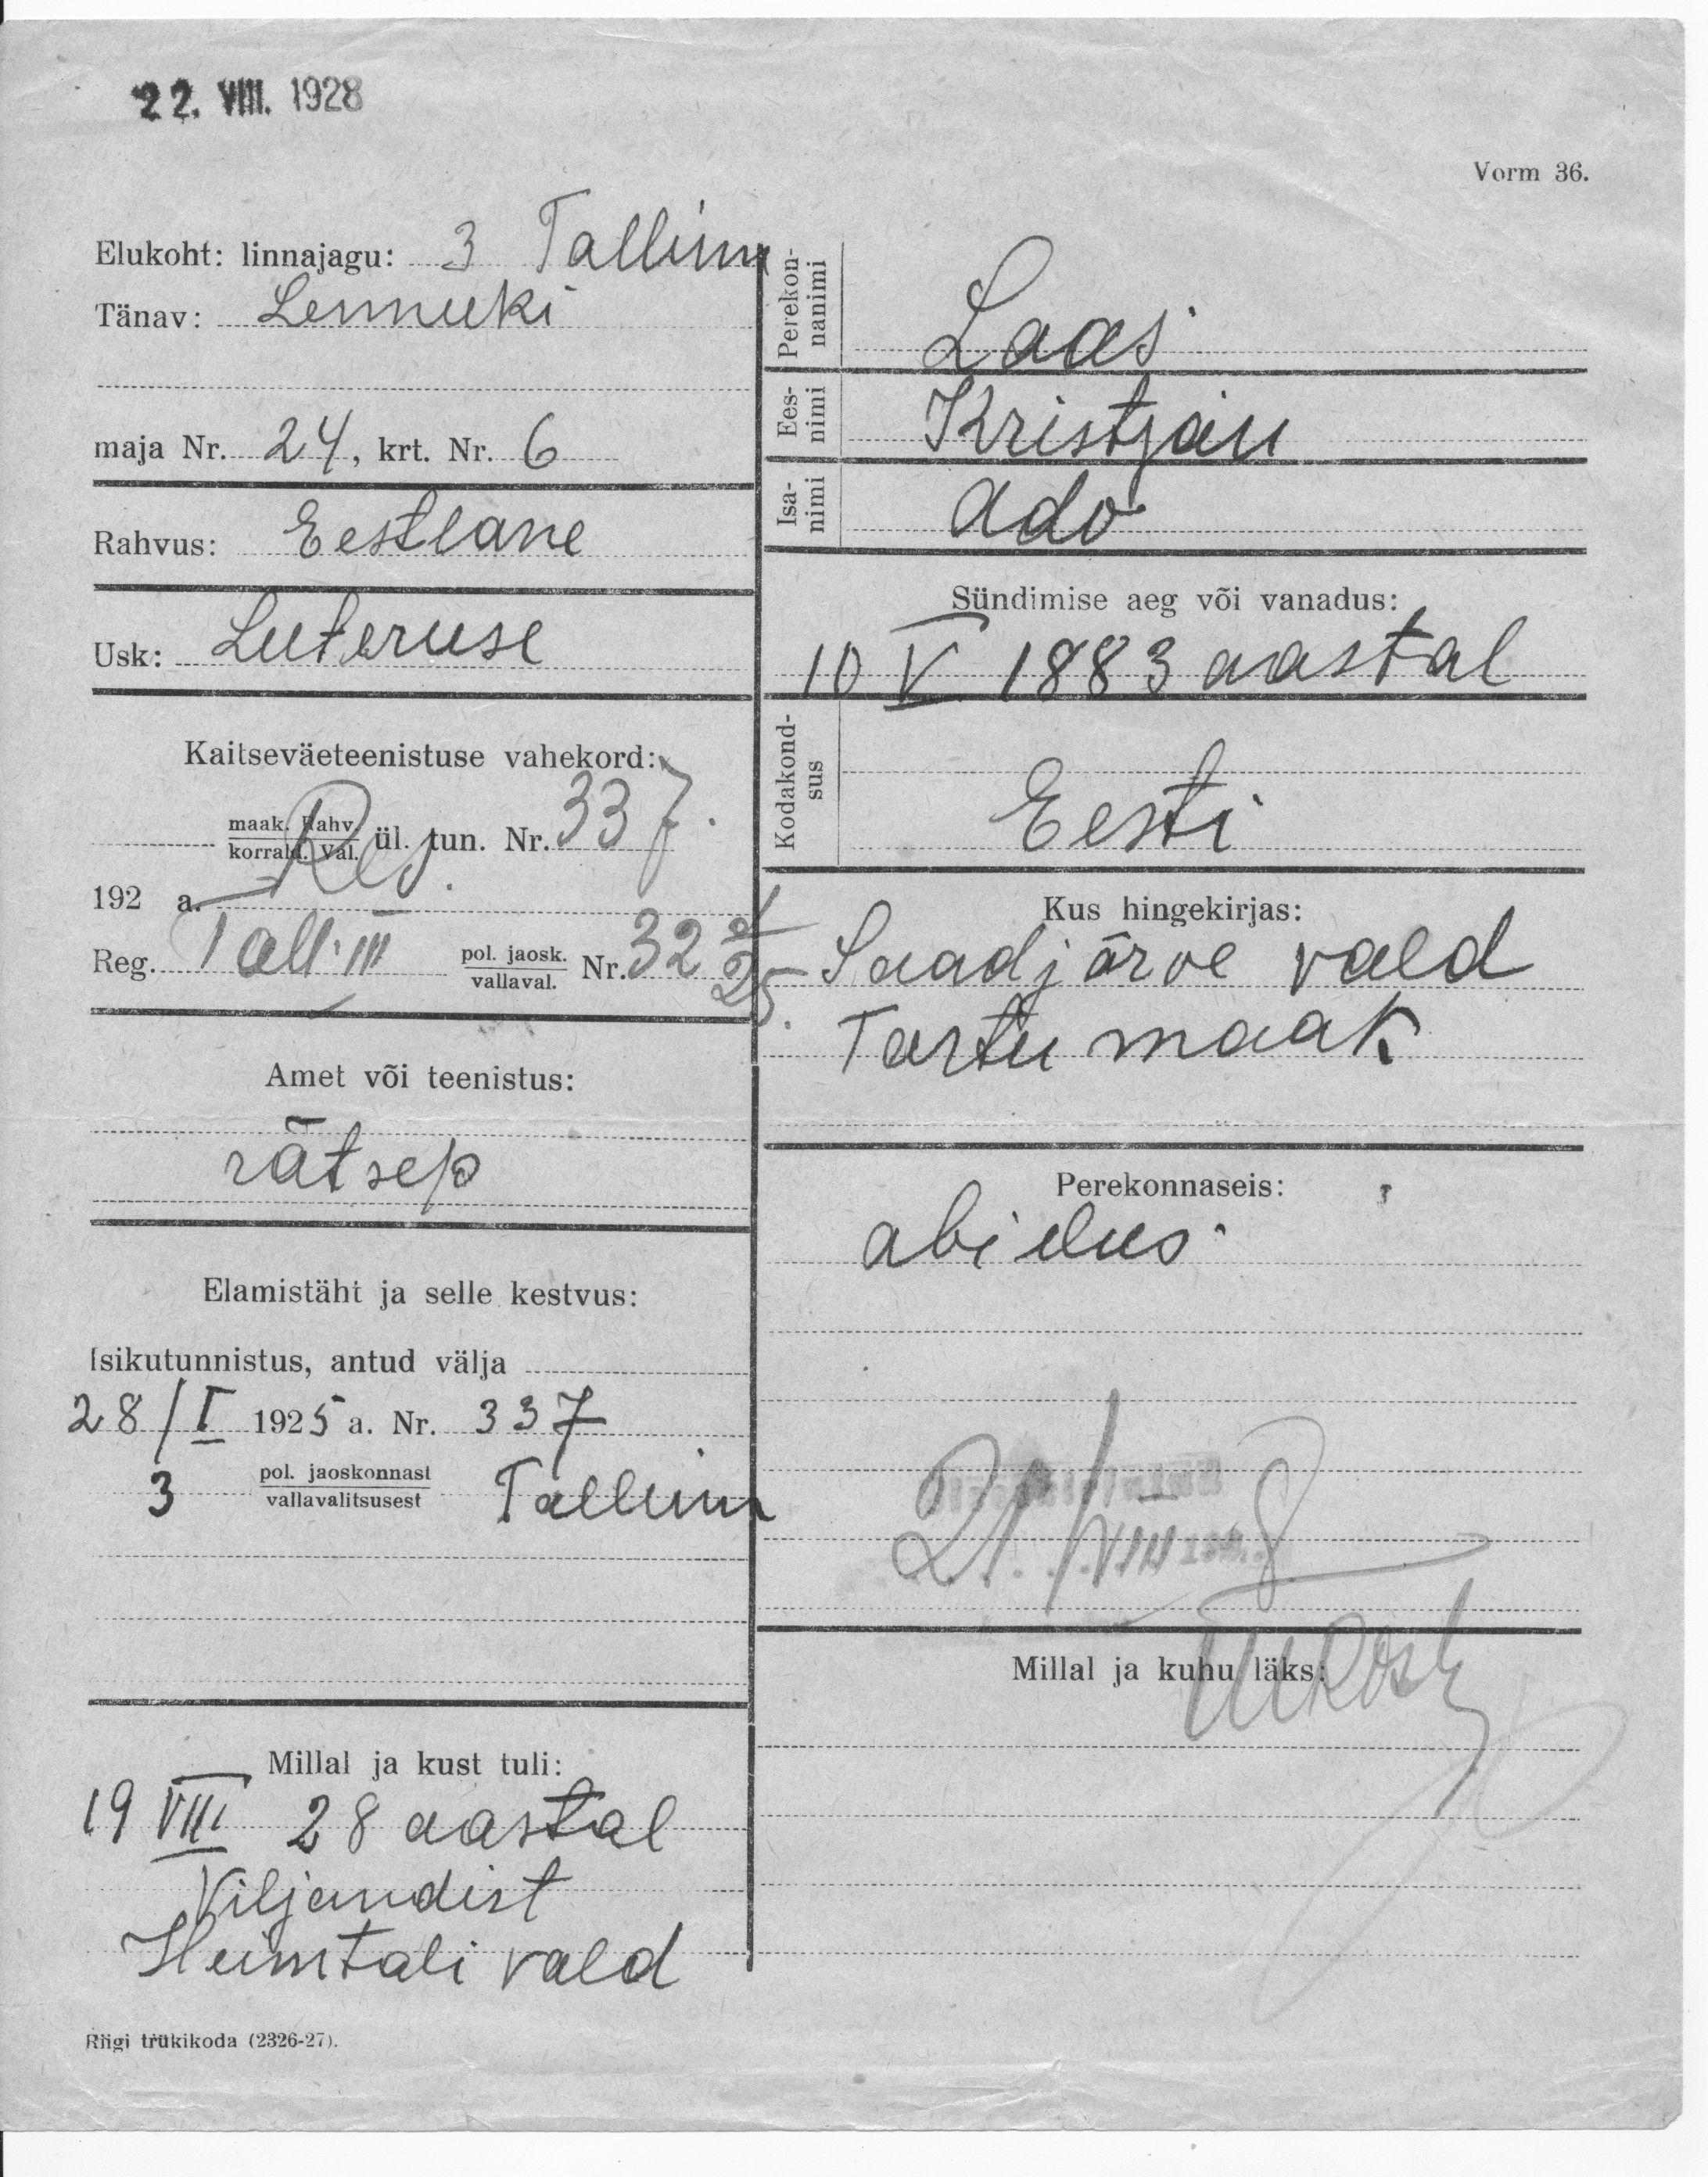 22. VIII. 1928
Vorm 36.
Elukoht: linnajagu: 3 Tallinn
Tänav: Lennuki
maja Nr. 24, krt. Nr. 6
Rahvus: Eestlane
Usk: Luteruse
Kaitseväeteenistuse vahekord:
maak. Rahv.
korrald. Val. ül. tun. Nr. 337.
Res.
192 a.
Reg. Tall. III pol. jaosk. Nr. 32
vallaval.
25.
Amet või teenistus:
rätsep
Elamistäht ja selle kestvus:
Isikutunnistus, antud välja
28/I 1925 a. Nr. 337
3 pol. jaoskonnast Tallinn
vallavalitsusest
Millal ja kust tuli:
19 VIII 28 aastal
Viljandist
Heimtali vald
Riigi trükikoda (2326-27).
Perekon-
nanimi
Laas
Ees-
nimi
Kristjan
Isa-
nimi
Ado
Sündimise aeg või vanadus:
10 V 1883 aastal
Kodakond-
sus
Eesti
Kus hingekirjas:
Saadjärve vald
Tartu maak
Perekonnaseis:
abielus
21/VIII 8
Millal ja kuhu läks: